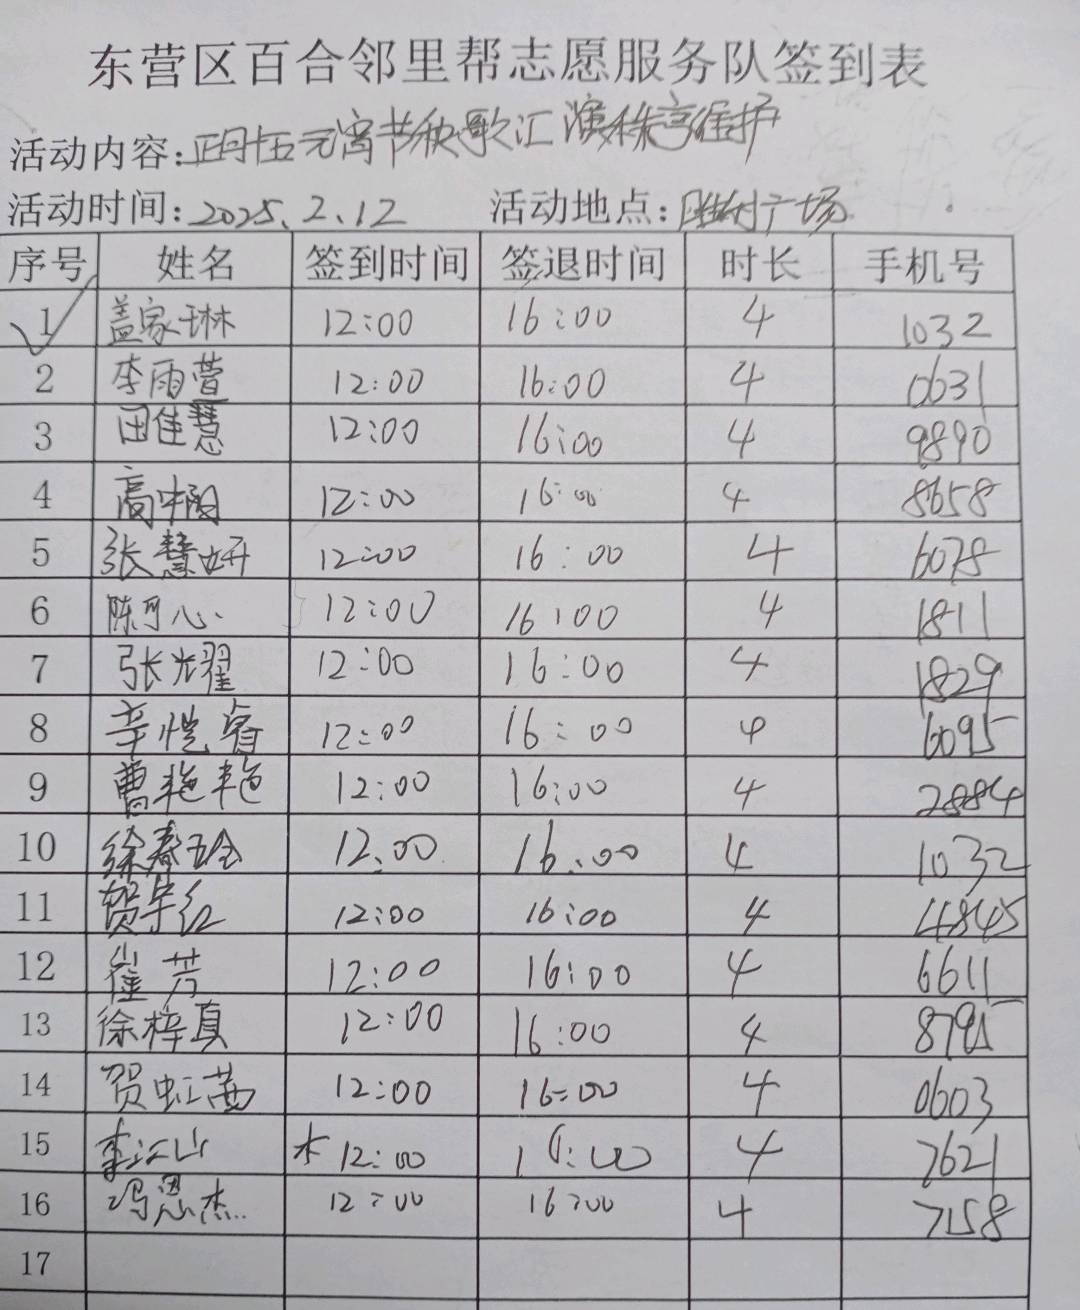 东营区百合邻里帮志愿服务队签到表
活动内容:正月十五元宵节秧歌汇演秩序维护
活动时间:2025.2.12 活动地点:胜利广场
序号 姓名 签到时间 签退时间 时长 手机号
1 盖家琳 12:00 16:00 4 1032
2 李雨萱 12:00 16:00 4 0631
3 田佳慧 12:00 16:00 4 9890
4 高中阳 12:00 16:00 4 8658
5 张慧妍 12:00 16:00 4 6078
6 陈可心 12:00 16:00 4 1811
7 张光耀 12:00 16:00 4 1829
8 辛恺睿 12:00 16:00 4 6095
9 曹艳艳 12:00 16:00 4 2884
10 徐春玲 12.00 16.00 4 1032
11 贺年红 12:00 16:00 4 4845
12 崔芳 12:00 16:00 4 6611
13 徐梓真 12:00 16:00 4 8795
14 贺虹茜 12:00 16:00 4 0603
15 李江山 12:00 16:00 4 7621
16 冯恩杰 12:00 16:00 4 7158
17